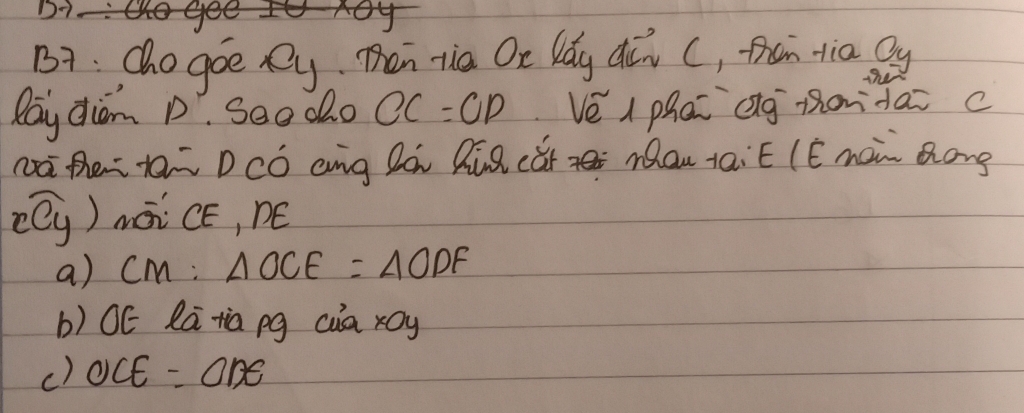 B7 : Cho góc xOy
B7 : Cho góc xOy . Trên tia Ox lấy điểm C , trên tia Oy
lấy điểm D . Sao cho OC = OD . Vẽ 1 phần đg tròn tâm C
trên
và trên tâm D có cùng bán kính cắt nhau tại E ( E nằm trong
xOy ) nối CE , DE
a) CM : ΔOCE = ΔODE
b) OE là tia pg của xOy
c) OCE = ODE